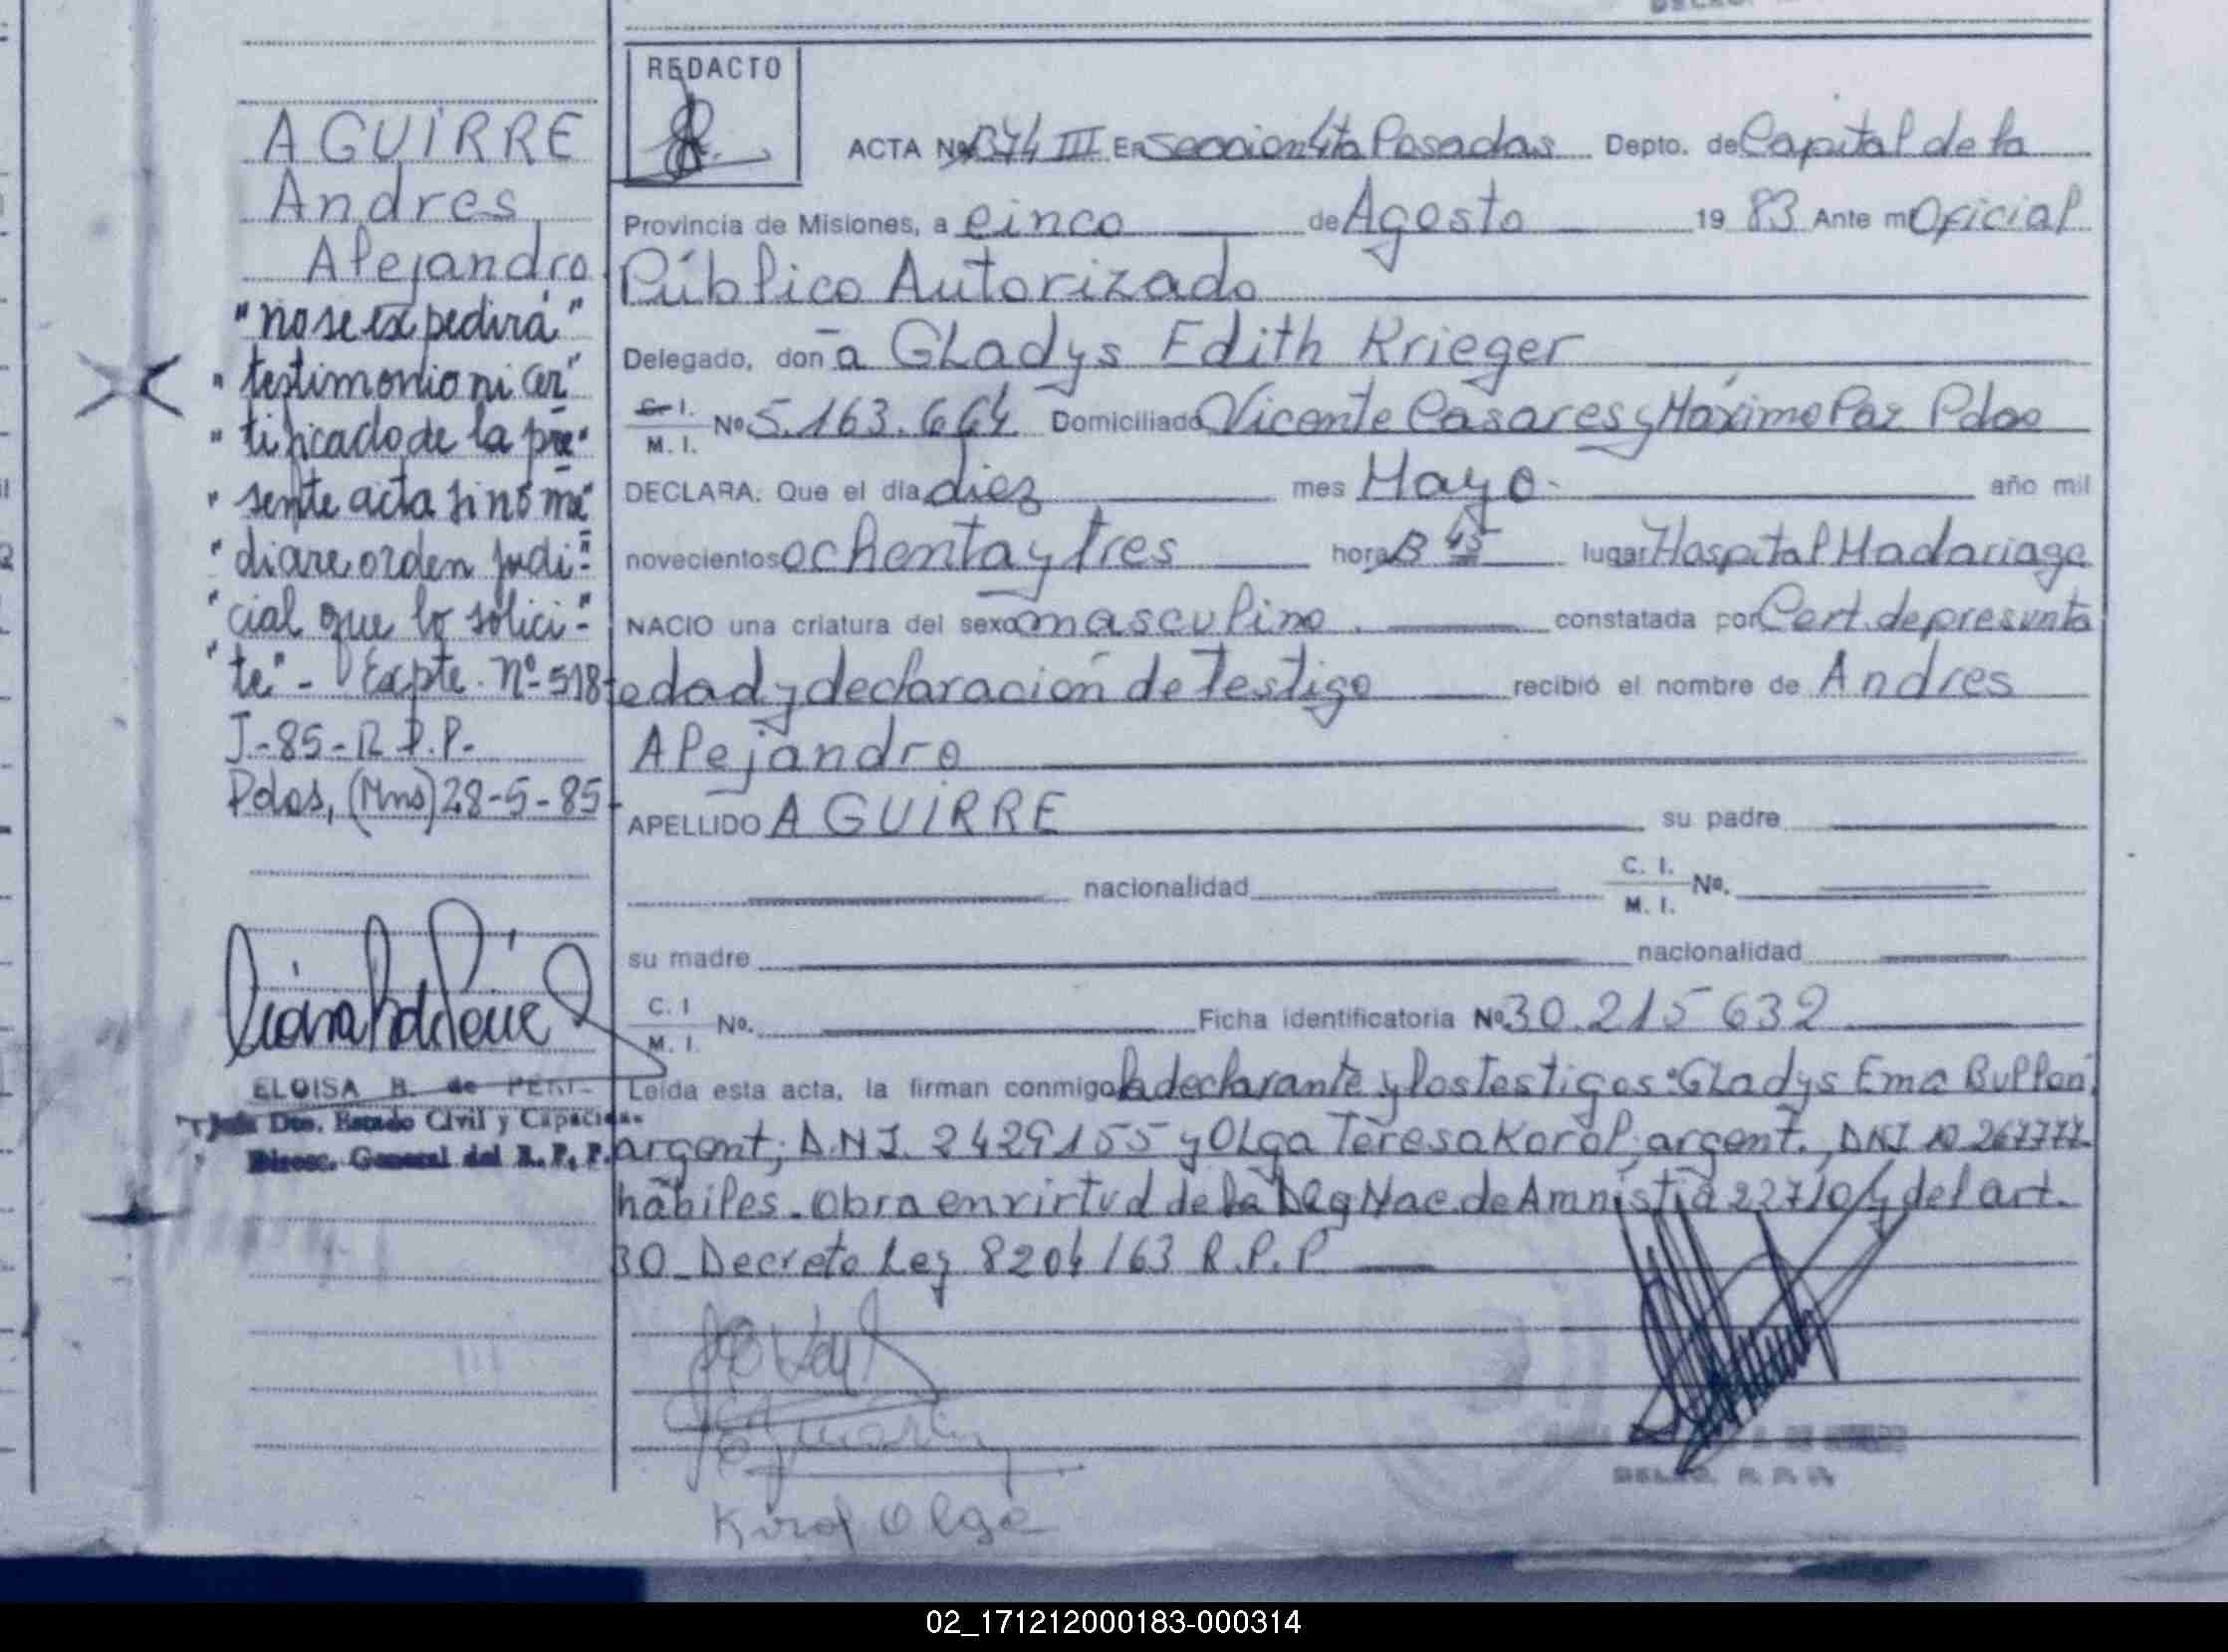 REDACTO
AGUIRRE
Andres
Alejandro
"no se expedirá"
"testimonio ni cer"
"tificado de la pre"
"sente acta si no me"
"diare orden judi-"
"cial que lo solici-"
"te" - Expte. nº 518-
J-85-R.P.P.-
Pdas, (Mns) 28-5-85-
ELOISA B. de
Dto. Estado Civil y
Direcc. General del R. P. P.
ACTA Nº 374 III En Seccion 4ta Posadas Depto. de Capital de la
Provincia de Misiones, a cinco de Agosto 19 83 Ante mi Oficial
Público Autorizado
Delegado, don a GLadys Edith Krieger
C. I.
M. I. Nº 5.163.664 Domiciliado Vicente Casares y Máximo Paz Pdas
DECLARA: Que el día diez mes Mayo - año mil
novecientos ochenta y tres hora 3 45 lugar Hospital Madariaga
NACIO una criatura del sexo masculino. constatada por Cert. de presunta
edad y declaración de Testigo recibió el nombre de Andres
Alejandro
APELLIDO AGUIRRE su padre
nacionalidad C. I. M. I. Nº.
su madre nacionalidad
C. I M. I. Nº. Ficha identificatoria Nº 30.215 632
Leída esta acta, la firman conmigo la declarante y los testigos: GLadys Ema
argent; D.N.I. 2429155 y OLga Teresa Korol; argent., DNI 10 267777
hábiles. Obra en virtud de la Ley Nac. de Amnistia 22710/ y del art.
30 - Decreto Ley 8204/63 R.P.P
Korol Olga
DELEG. R. P. P.
02_171212000183-000314